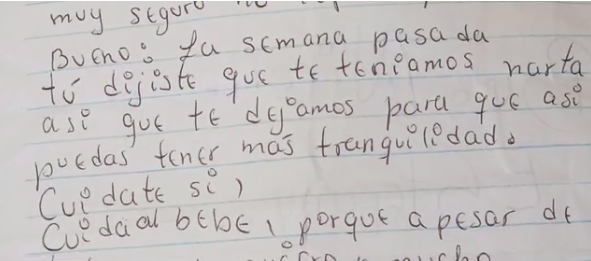 muy seguro
Bueno: La semana pasada
tú dijiste que te teníamos harta
así que te dejamos para que así
puedas tener más tranquilidad.
Cuídate sí,
Cuida al bebe, porque a pesar de
mucho